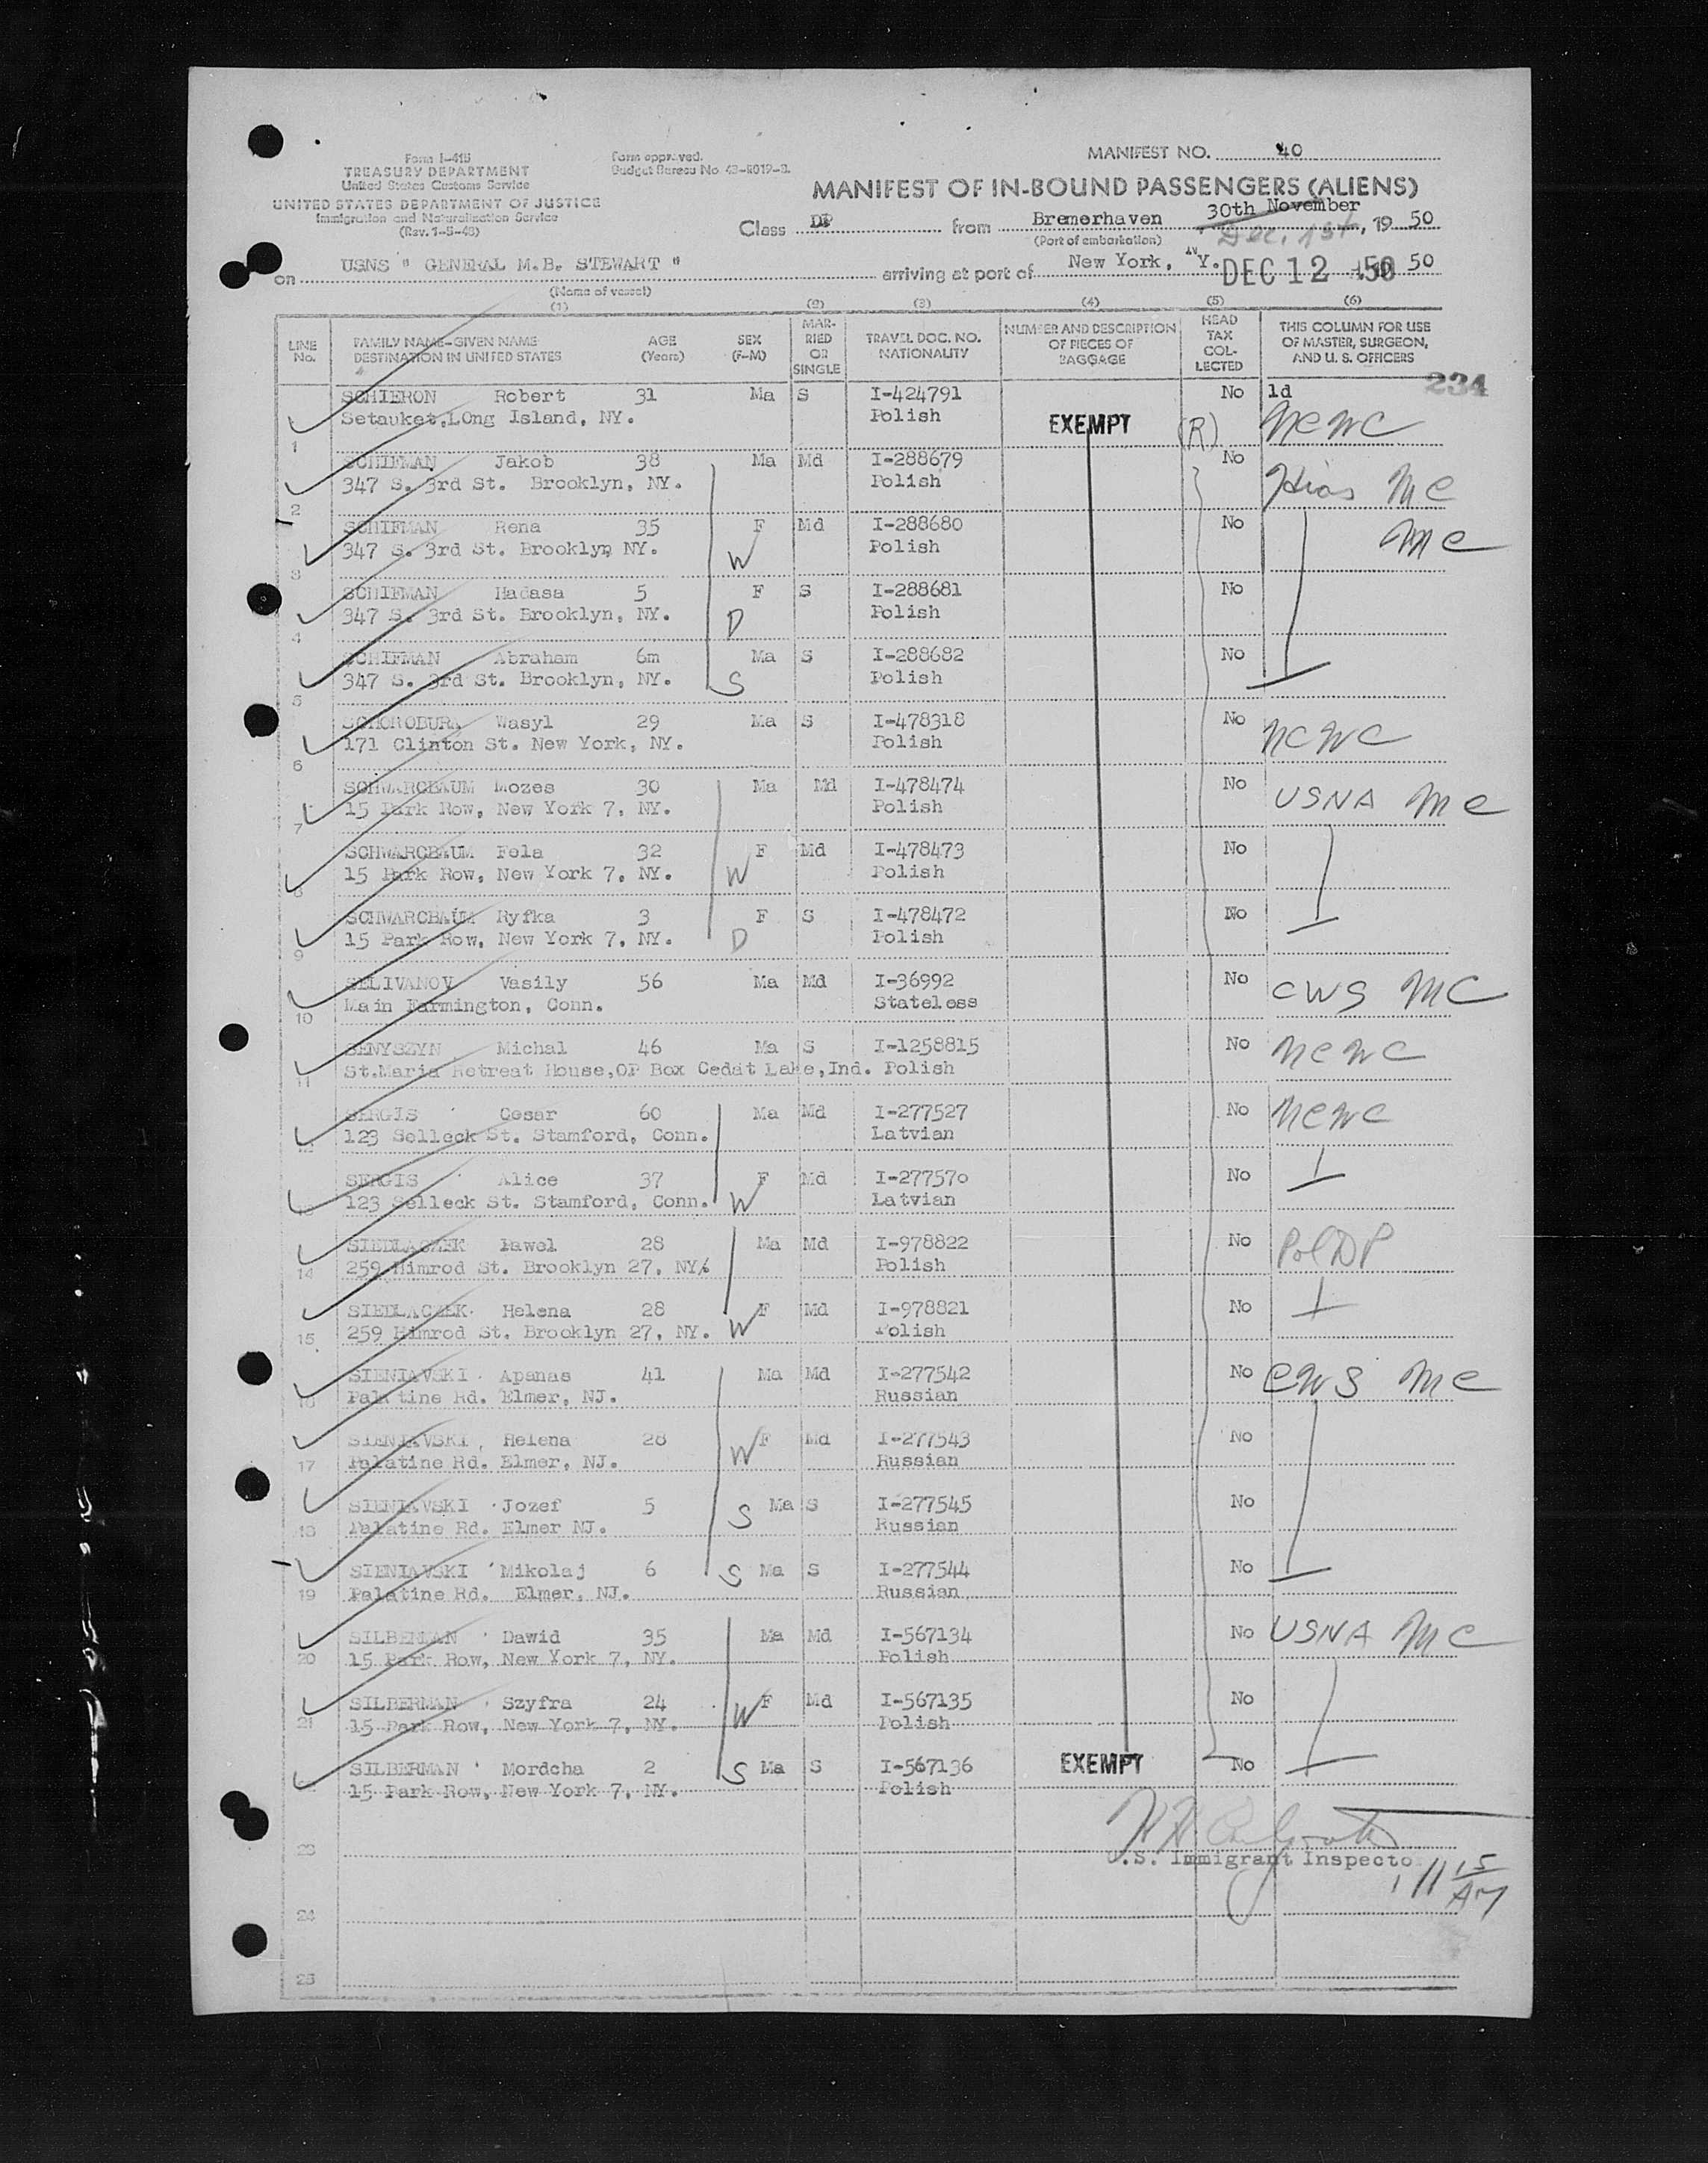 Form I-415
TREASURY DEPARTMENT
United States Customs Service
UNITED STATES DEPARTMENT OF JUSTICE
Immigration and Naturalization Service
(Rev. 1-5-48)
Form approved.
Budget Bureau No. 43-R019-3.
MANIFEST NO. 40
MANIFEST OF IN-BOUND PASSENGERS (ALIENS)
Class DP from Bremerhaven 30th November, 19 50
(Port of embarkation) Dec. 1st
on USNS " GENERAL M.B. STEWART " arriving at port of New York, NY. DEC 12 50 50
(Name of vessel)
(1) (2) (3) (4) (5) (6)
LINE No.
FAMILY NAME-GIVEN NAME DESTINATION IN UNITED STATES
AGE (Years)
SEX (F-M)
MARRIED OR SINGLE
TRAVEL DOC. NO. NATIONALITY
NUMBER AND DESCRIPTION OF PIECES OF BAGGAGE
HEAD TAX COLLECTED
THIS COLUMN FOR USE OF MASTER, SURGEON, AND U. S. OFFICERS
234
SCHIERON Robert 31 Ma S I-424791 No ld
1 Setauket,LOng Island, NY. Polish EXEMPT (R) NCWC
SCHIFMAN Jakob 38 Ma Md I-288679 No
2 347 S. 3rd St. Brooklyn, NY. Polish Hias MC
SCHIFMAN Rena 35 F Md I-288680 No
3 347 S. 3rd St. Brooklyn NY. W Polish MC
SCHIFMAN Hadasa 5 F S I-288681 No
4 347 S. 3rd St. Brooklyn, NY. D Polish
SCHIFMAN Abraham 6m Ma S I-288682 No
5 347 S. 3rd St. Brooklyn, NY. S Polish
SCHOROBURA Wasyl 29 Ma S I-478318 No
6 171 Clinton St. New York, NY. Polish NCWC
SCHWARCBAUM Mozes 30 Ma Md I-478474 No
7 15 Park Row, New York 7, NY. Polish USNA MC
SCHWARCBAUM Fela 32 F Md I-478473 No
8 15 Park Row, New York 7, NY. W Polish
SCHWARCBAUM Ryfka 3 F S I-478472 No
9 15 Park Row, New York 7, NY. D Polish
SELIVANOV Vasily 56 Ma Md I-36992 No
10 Main Farmington, Conn. Stateless CWS MC
SENYSZYN Michal 46 Ma S I-1258815 No NCWC
11 St.Maria Retreat House,OP Box Cedat Lake,Ind. Polish
SERGIS Cesar 60 Ma Md I-277527 No NCWC
12 123 Selleck St. Stamford, Conn. Latvian
SERGIS Alice 37 F Md I-277570 No
13 123 Selleck St. Stamford, Conn. W Latvian
SIEDLACZEK Pawel 28 Ma Md I-978822 No PolDP
14 259 Himrod St. Brooklyn 27, NY. Polish
SIEDLACZEK Helena 28 F Md I-978821 No
15 259 Himrod St. Brooklyn 27, NY. W Polish
SIENIAVSKI Apanas 41 Ma Md I-277542 No CWS MC
16 Palatine Rd. Elmer, NJ. Russian
SIENIAVSKI Helena 28 F Md I-277543 No
17 Palatine Rd. Elmer, NJ. W Russian
SIENIAVSKI Jozef 5 Ma S I-277545 No
18 Palatine Rd. Elmer NJ. S Russian
SIENIAVSKI Mikolaj 6 S Ma S I-277544 No
19 Palatine Rd. Elmer, NJ. Russian
SILBERMAN Dawid 35 Ma Md I-567134 No USNA MC
20 15 Park Row, New York 7, NY. Polish
SILBERMAN Szyfra 24 F Md I-567135 No
21 15 Park Row, New York 7, NY. W Polish
SILBERMAN Mordcha 2 S Ma S I-567136 EXEMPT No
15 Park Row, New York 7, NY. Polish
23 U.S. Immigrant Inspecto
11 15 AM
24
25